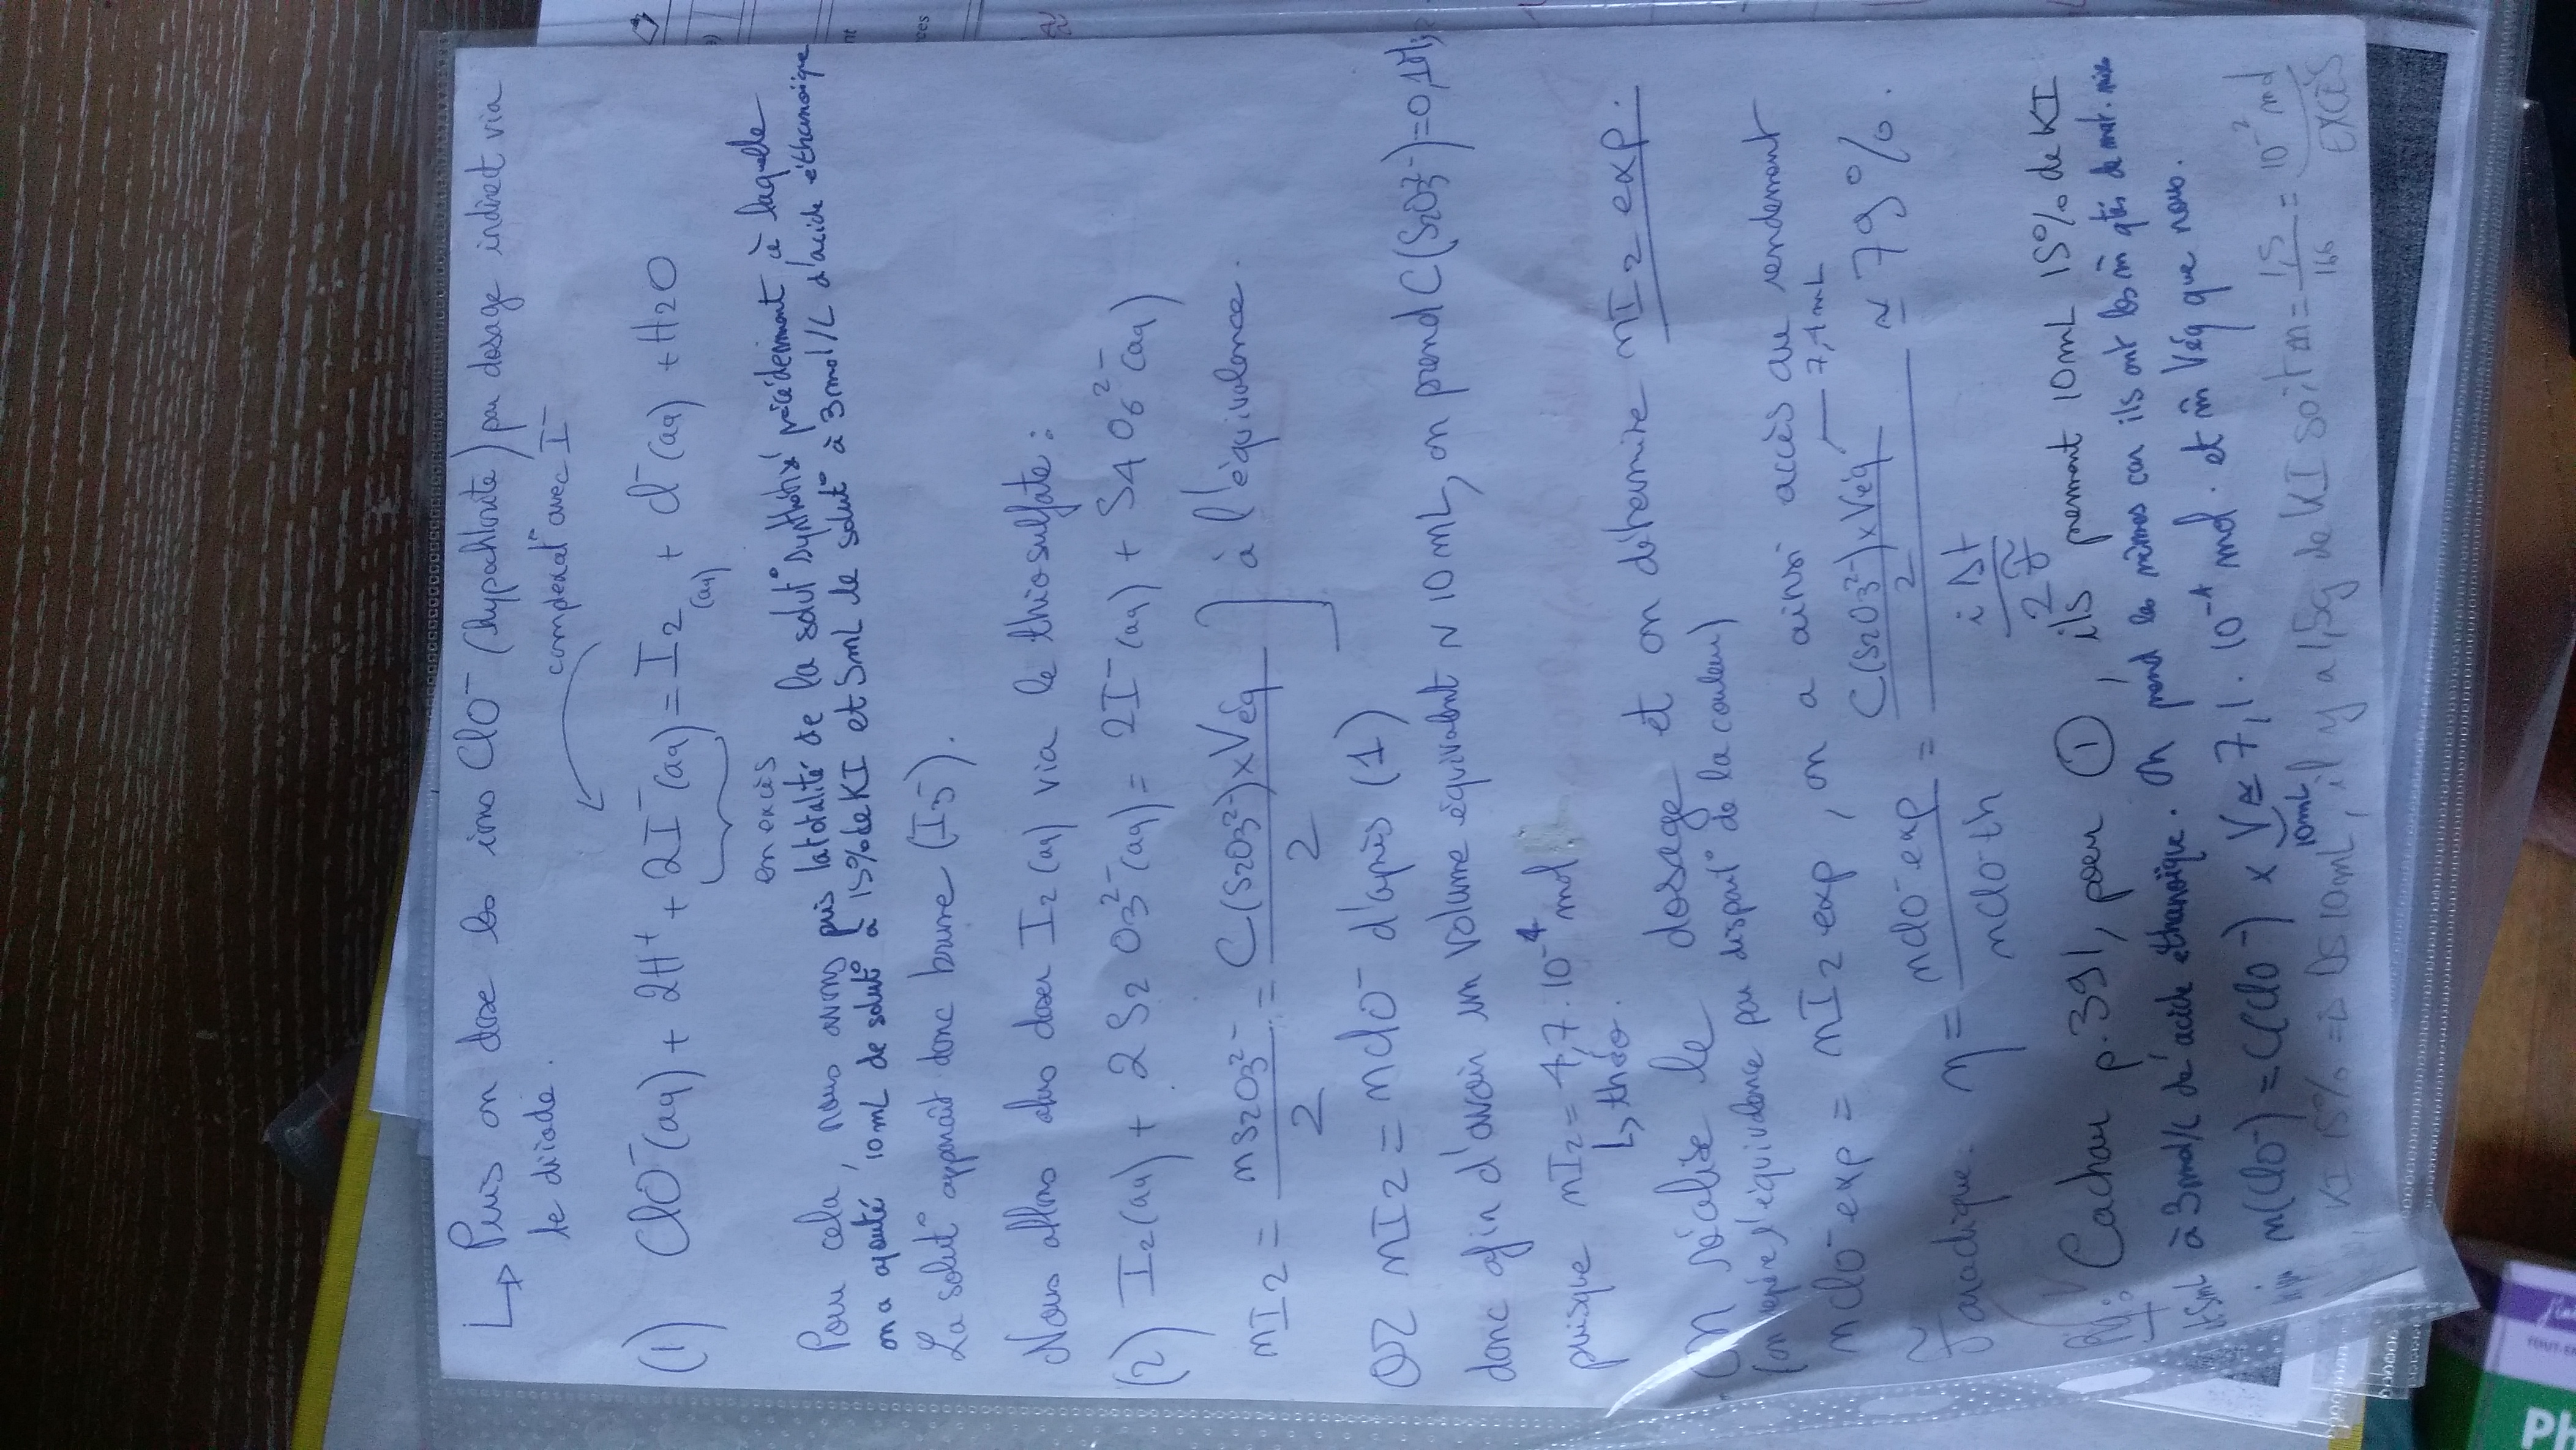 ↳ Puis on dose les ions ClO⁻ (hypochlorite) par dosage indirect via
le diiode.
complexat° avec I⁻
(1) ClO⁻(aq) + 2H⁺ + 2I⁻(aq) = I₂(aq) + Cl⁻(aq) + H₂O
en excès
Pour cela, nous avons pris la totalité de la solut° synthétisé précédemment à laquelle
on a ajouté 10mL de solut° à 15% de KI et 5mL de solut° à 3mol/L d'acide éthanoïque
La solut° apparaît donc brune (I₃⁻).
Nous allons alors doser I₂(aq) via le thiosulfate :
(2) I₂(aq) + 2S₂O₃²⁻(aq) = 2I⁻(aq) + S₄O₆²⁻(aq)
nI₂ = nS₂O₃²⁻ / 2 = C(S₂O₃²⁻) x Véq / 2 ] à l'équivalence.
OR nI₂ = nClO⁻ d'après (1)
donc afin d'avoir un volume équivalent ~ 10mL, on prend C(S₂O₃²⁻) = 0,1
puisque nI₂ = 4,7.10⁻⁴ mol
↳ théo.
On réalise le dosage et on détermine nI₂ exp.
(on repère l'équivalence par disparit° de la couleur)
nClO⁻exp = nI₂ exp, on a ainsi accès au rendement
faradique. η = nClO⁻exp / nClO⁻th = (C(S₂O₃²⁻) x Véq / 2) / (i Δt / 2F) ≃ 79%.
7,1mL
Cachau p.391, pour ①, ils prennent 10mL 15% de KI
et 5mL à 3mol/L de acide éthanoïque. On prend les mêmes car ils ont les m̂ qtés de mat.
n(ClO⁻) = C(ClO⁻) x V ≃ 7,1.10⁻⁴ mol. et m̂ Véq que nous.
10mL
KI 15% => Ds 10mL, il y a 1,5g de KI soit n = 1,5 / 166 = 10⁻² mol
EXCÈS